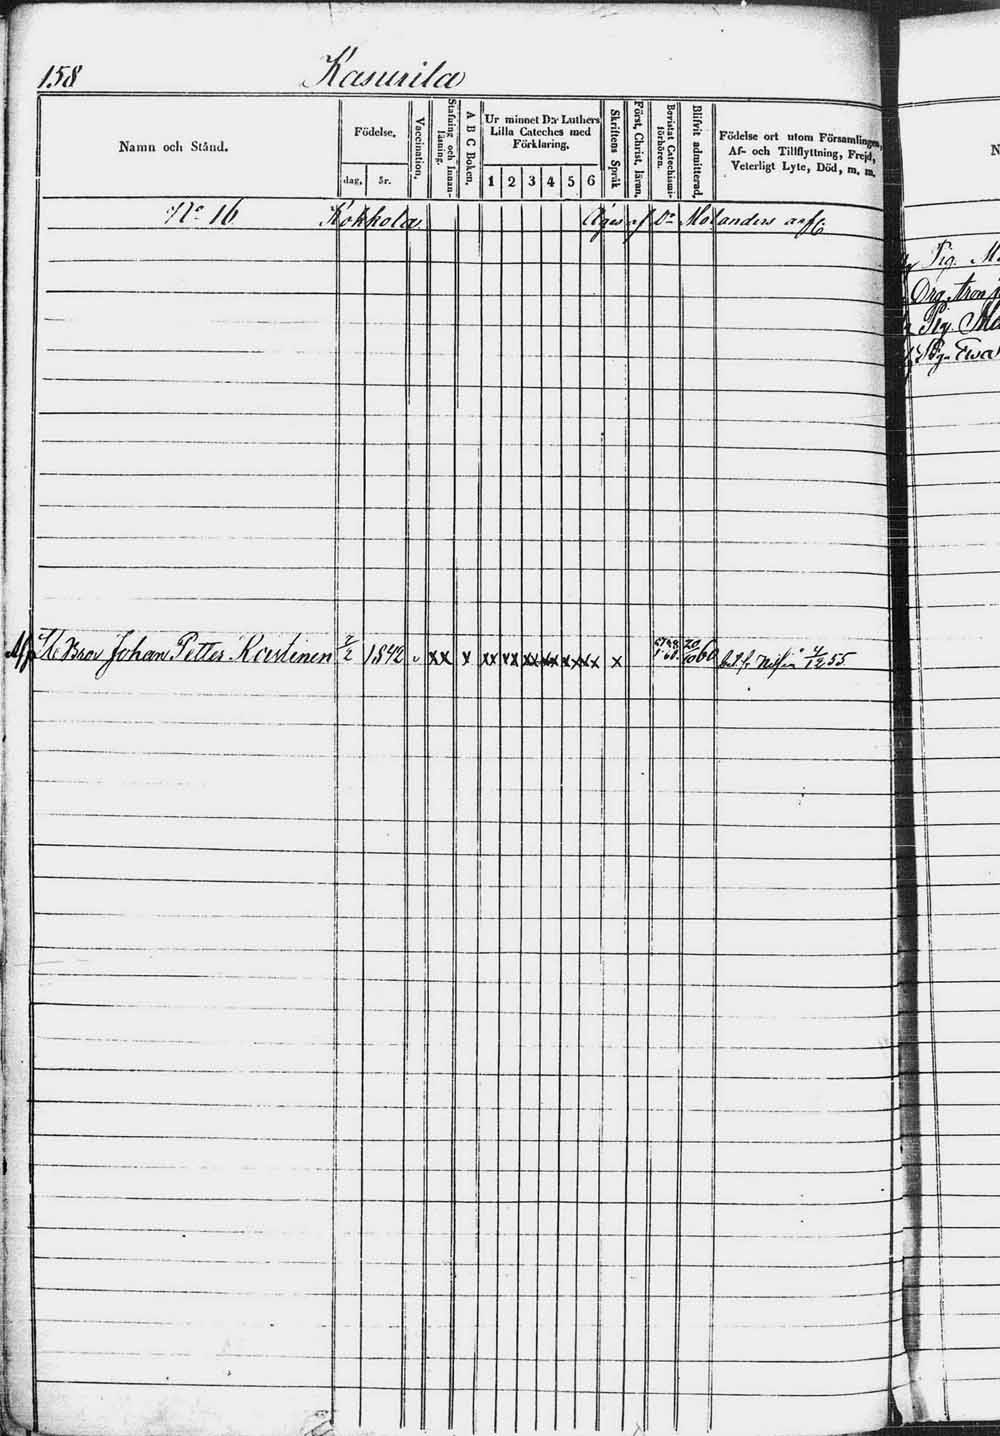 158 Kasurila
Namn och Stånd.
Födelse.
dag. år.
Vaccination.
Stafning och Innanläsning.
A B C Boken.
Ur minnet D:r Luthers Lilla Cateches med Förklaring.
1 2 3 4 5 6
Skriftens Språk
Först. Christ. läran.
Bevistat Catechismiförhören.
Blifvit admitterad.
Födelse ort utom Församlingen, Af- och Tillflyttning, Frejd, Veterligt Lyte, Död, m. m.
N:o 16 Kokkola. Äges af Dr Molanders
Johan Petter Kastinen 2/2 1842 v xx x xx xx xx xx xx xx x 20/10 60 55
N
Pig.
Drg. Aron
Pig.
Ewa